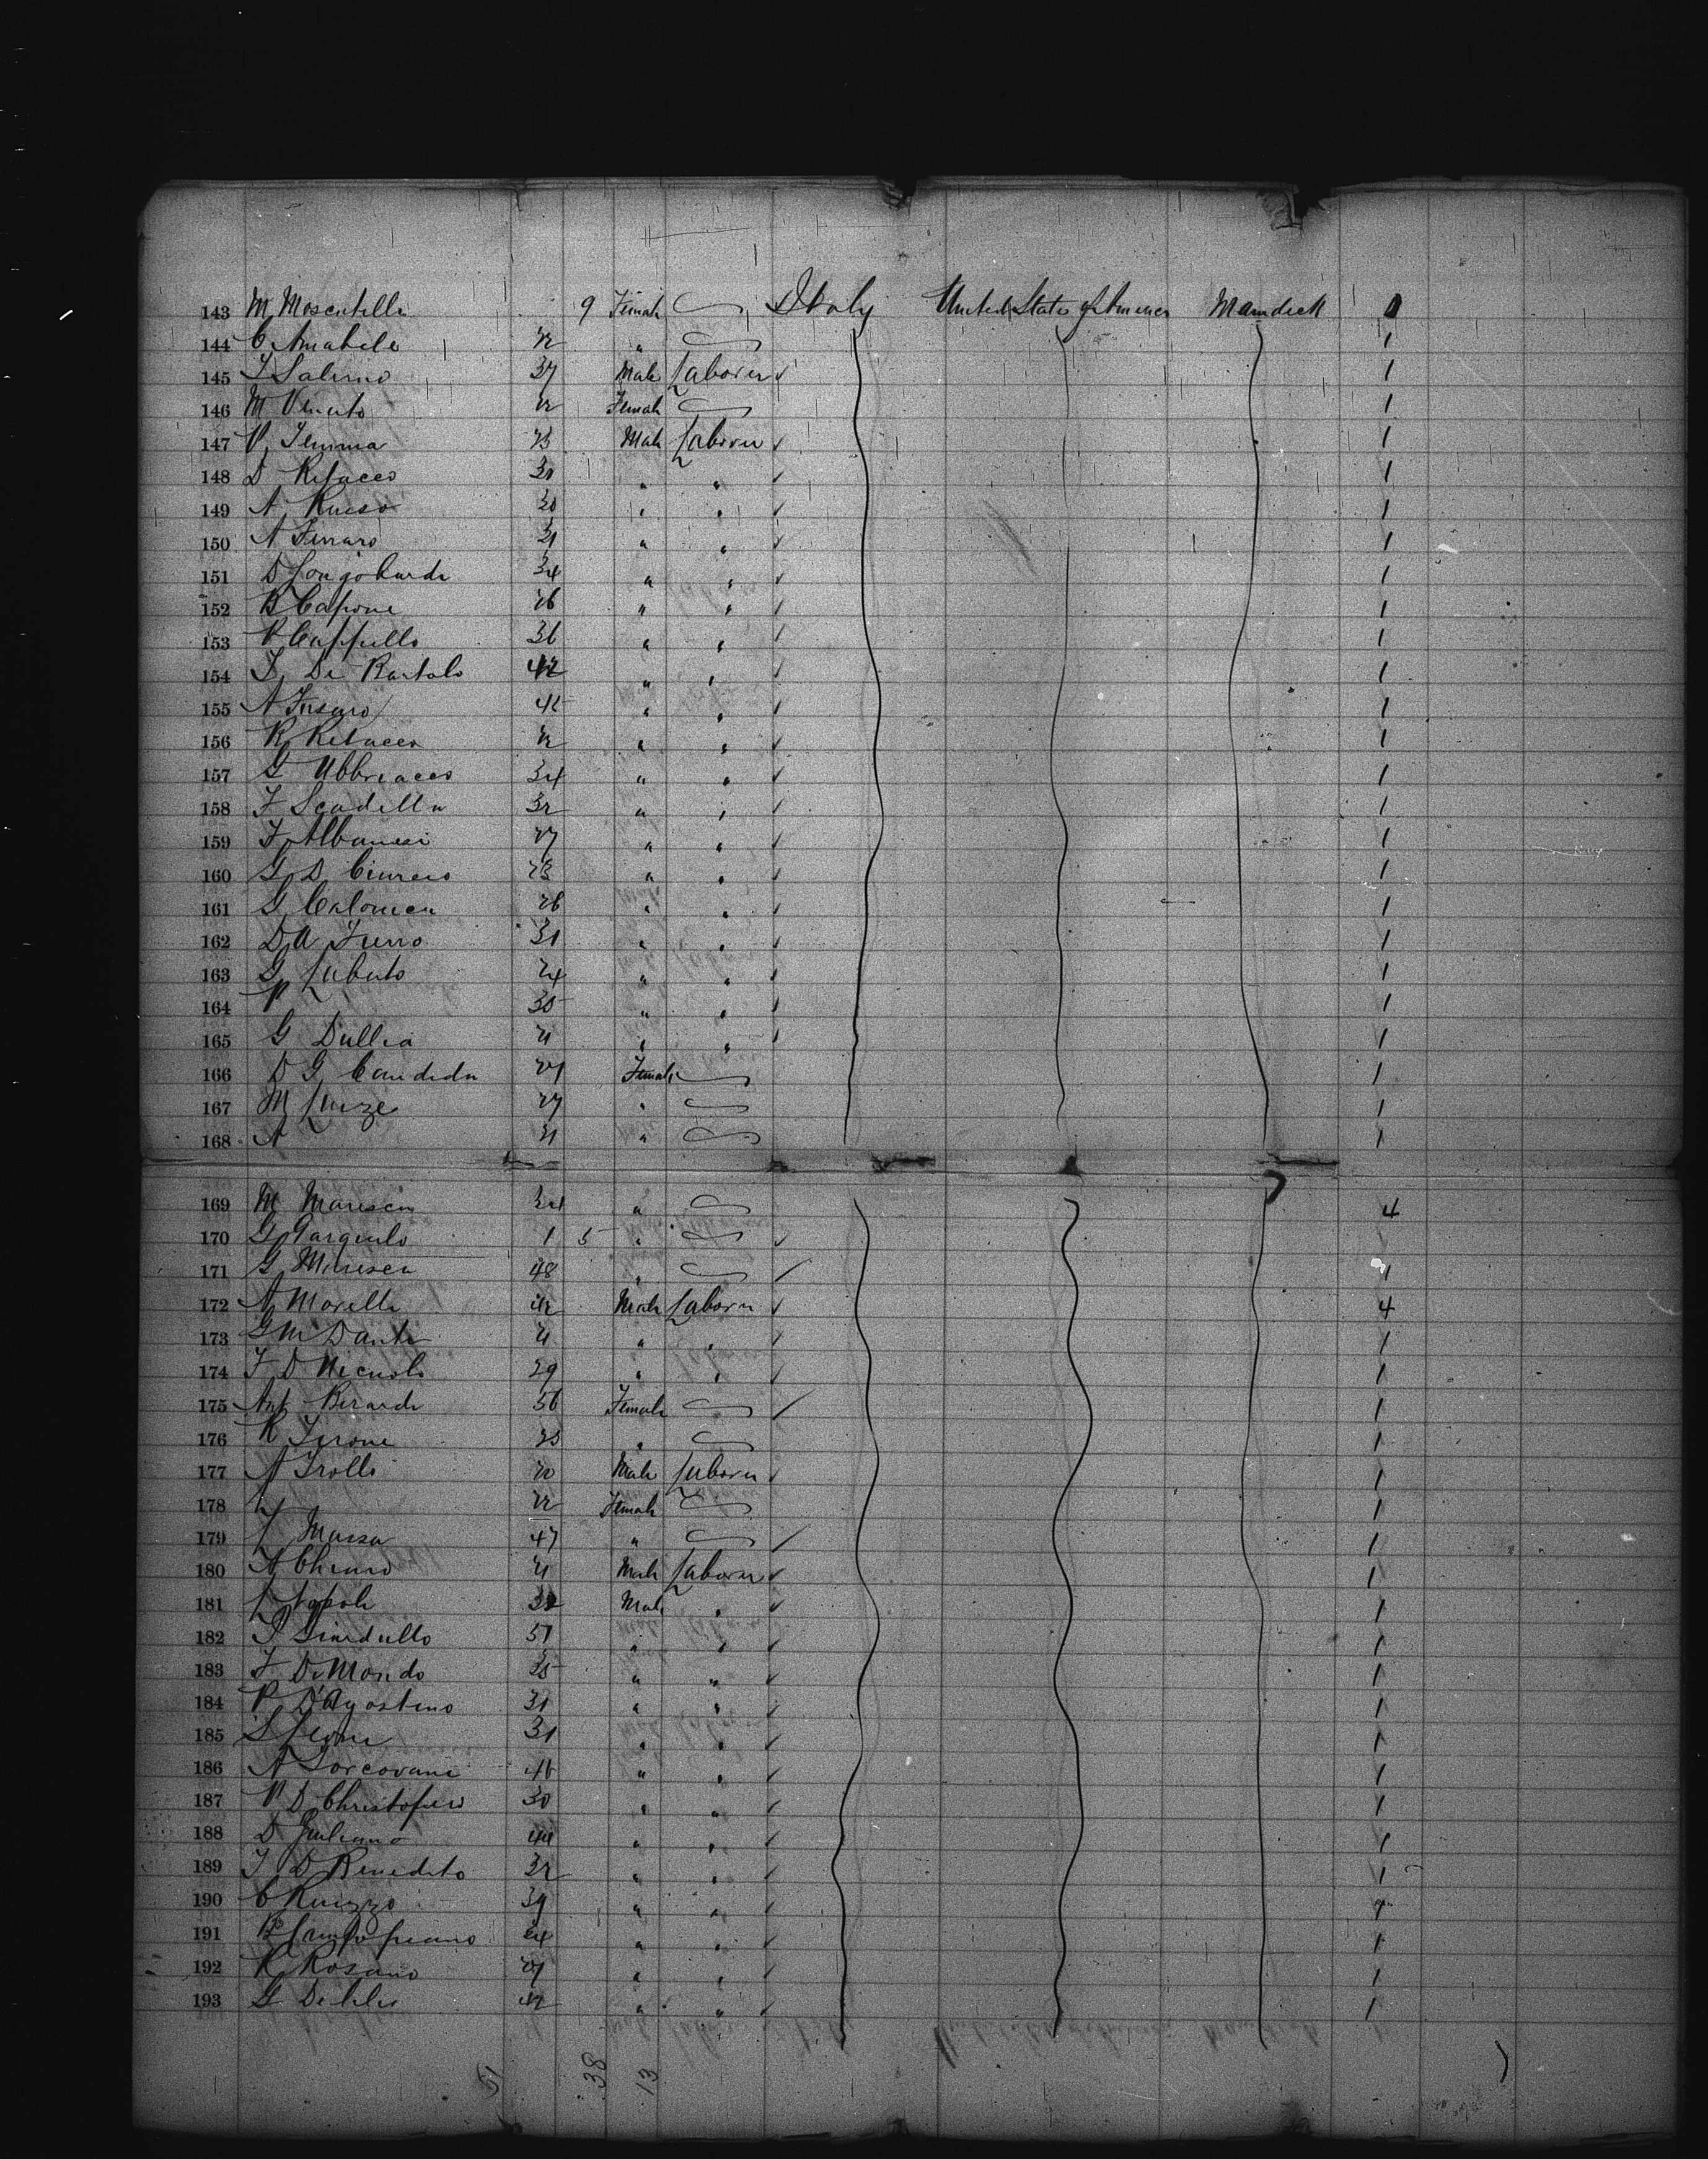 143 M Moscatelli 9 Female Italy United States of America Maindeck 1
144 C Amabile 22 " 1
145 F Salerno 37 Male Laborer ✓ 1
146 M Venuto 22 Female 1
147 V Jemma 23 Male Laborer ✓ 1
148 D Retacco 31 " " ✓ 1
149 A Russo 20 " " ✓ 1
150 A Ferraro 21 " " ✓ 1
151 D Longobardi 34 " " ✓ 1
152 B Capone 26 " " ✓ 1
153 P Cappello 36 " " ✓ 1
154 F De Bartolo 42 " " ✓ 1
155 A Fusaro 42 " " ✓ 1
156 R Retacco 22 " " ✓ 1
157 G Ubbriaco 34 " " ✓ 1
158 F Scadella 32 " " ✓ 1
159 F Albanesi 27 " " ✓ 1
160 G D 23 " " ✓ 1
161 G Calomea 26 " " ✓ 1
162 D A Fierro 31 " " ✓ 1
163 G Lubato 24 " " ✓ 1
164 P " 35 " " ✓ 1
165 G Dullia 21 " " ✓ 1
166 D G Candida 27 Female 1
167 M Luize 27 " 1
168 A 21 " 1
169 M Maresca 34 " 4
170 G Gargiulo 1 5 " ✓
171 G Maresca 48 " ✓ 1
172 A Morelli 42 Male Laborer ✓ 4
173 G M Dante 21 " " ✓ 1
174 F D Nicuolo 29 " " ✓ 1
175 Ant Berardi 56 Female ✓ 1
176 R Jerone 23 " 1
177 A Trolli 20 Male Laborer ✓ 1
178 22 Female 1
179 L Massa 47 " ✓ 1
180 A Chiaro 21 Male Laborer ✓ 1
181 L Napoli Male " ✓ 1
182 P Giardullo 51 " " ✓ 1
183 F Di Mondo 35 " " ✓ 1
184 P D'Agostino 31 " " ✓ 1
185 S Leone 31 " " ✓ 1
186 A Lorcovani 46 " " ✓ 1
187 P D Christofero 30 " " ✓ 1
188 D Giuliano 44 " " ✓ 1
189 F D Benedito 32 " " ✓ 1
190 C Ruizzo 39 " " ✓
191 B 24 " " ✓ 1
192 R Rosano 27 " " ✓ 1
193 G 42 " " ✓ 1
51 38 13